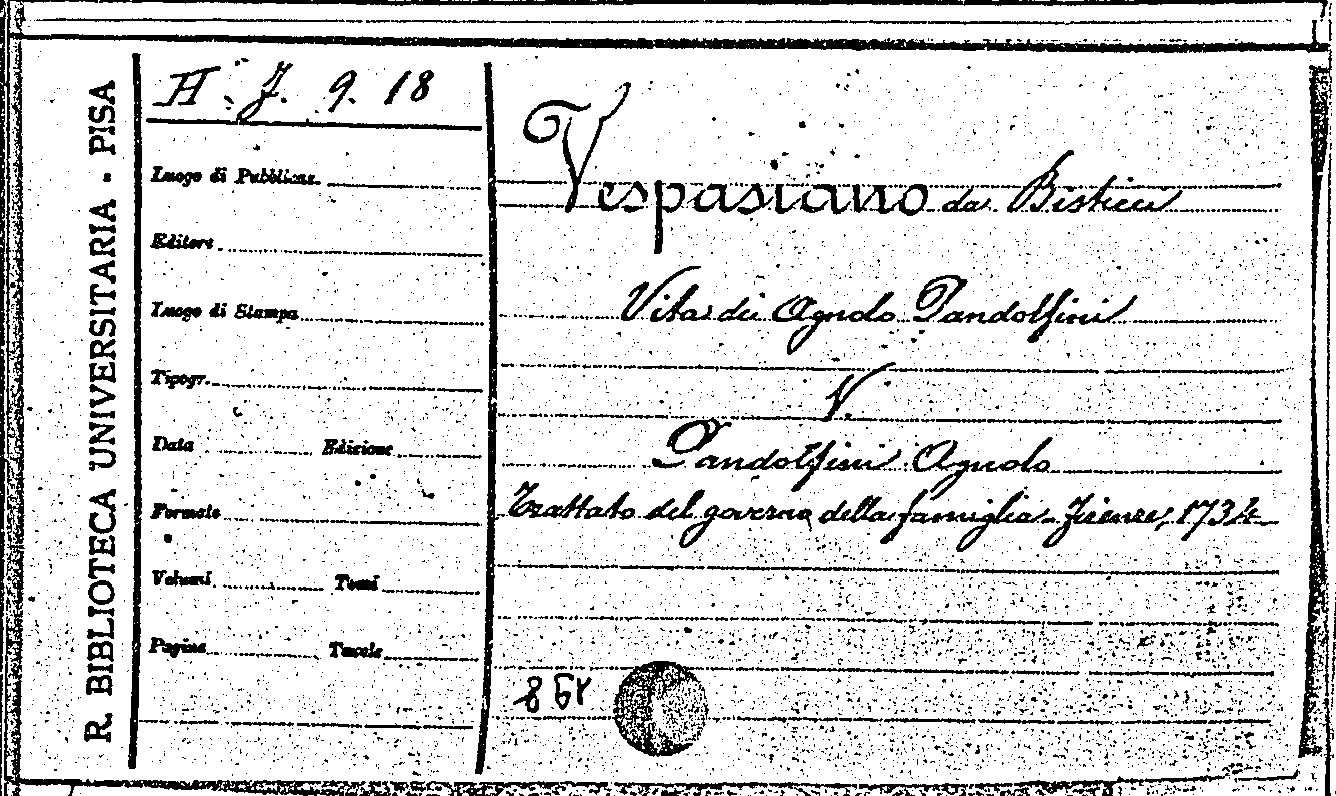 R. BIBLIOTECA UNIVERSITARIA - PISA
H. J. 9. 18
Luogo di Pubblicaz.
Editore
Luogo di Stampa
Tipogr.
Data Edizione
Formato
Volumi Tomi
Pagine Tavole
Vespasiano da Bisticci
Vita di Agnolo Pandolfini
V.
Pandolfini Agnolo
Trattato del governo della famiglia. Firenze, 1734